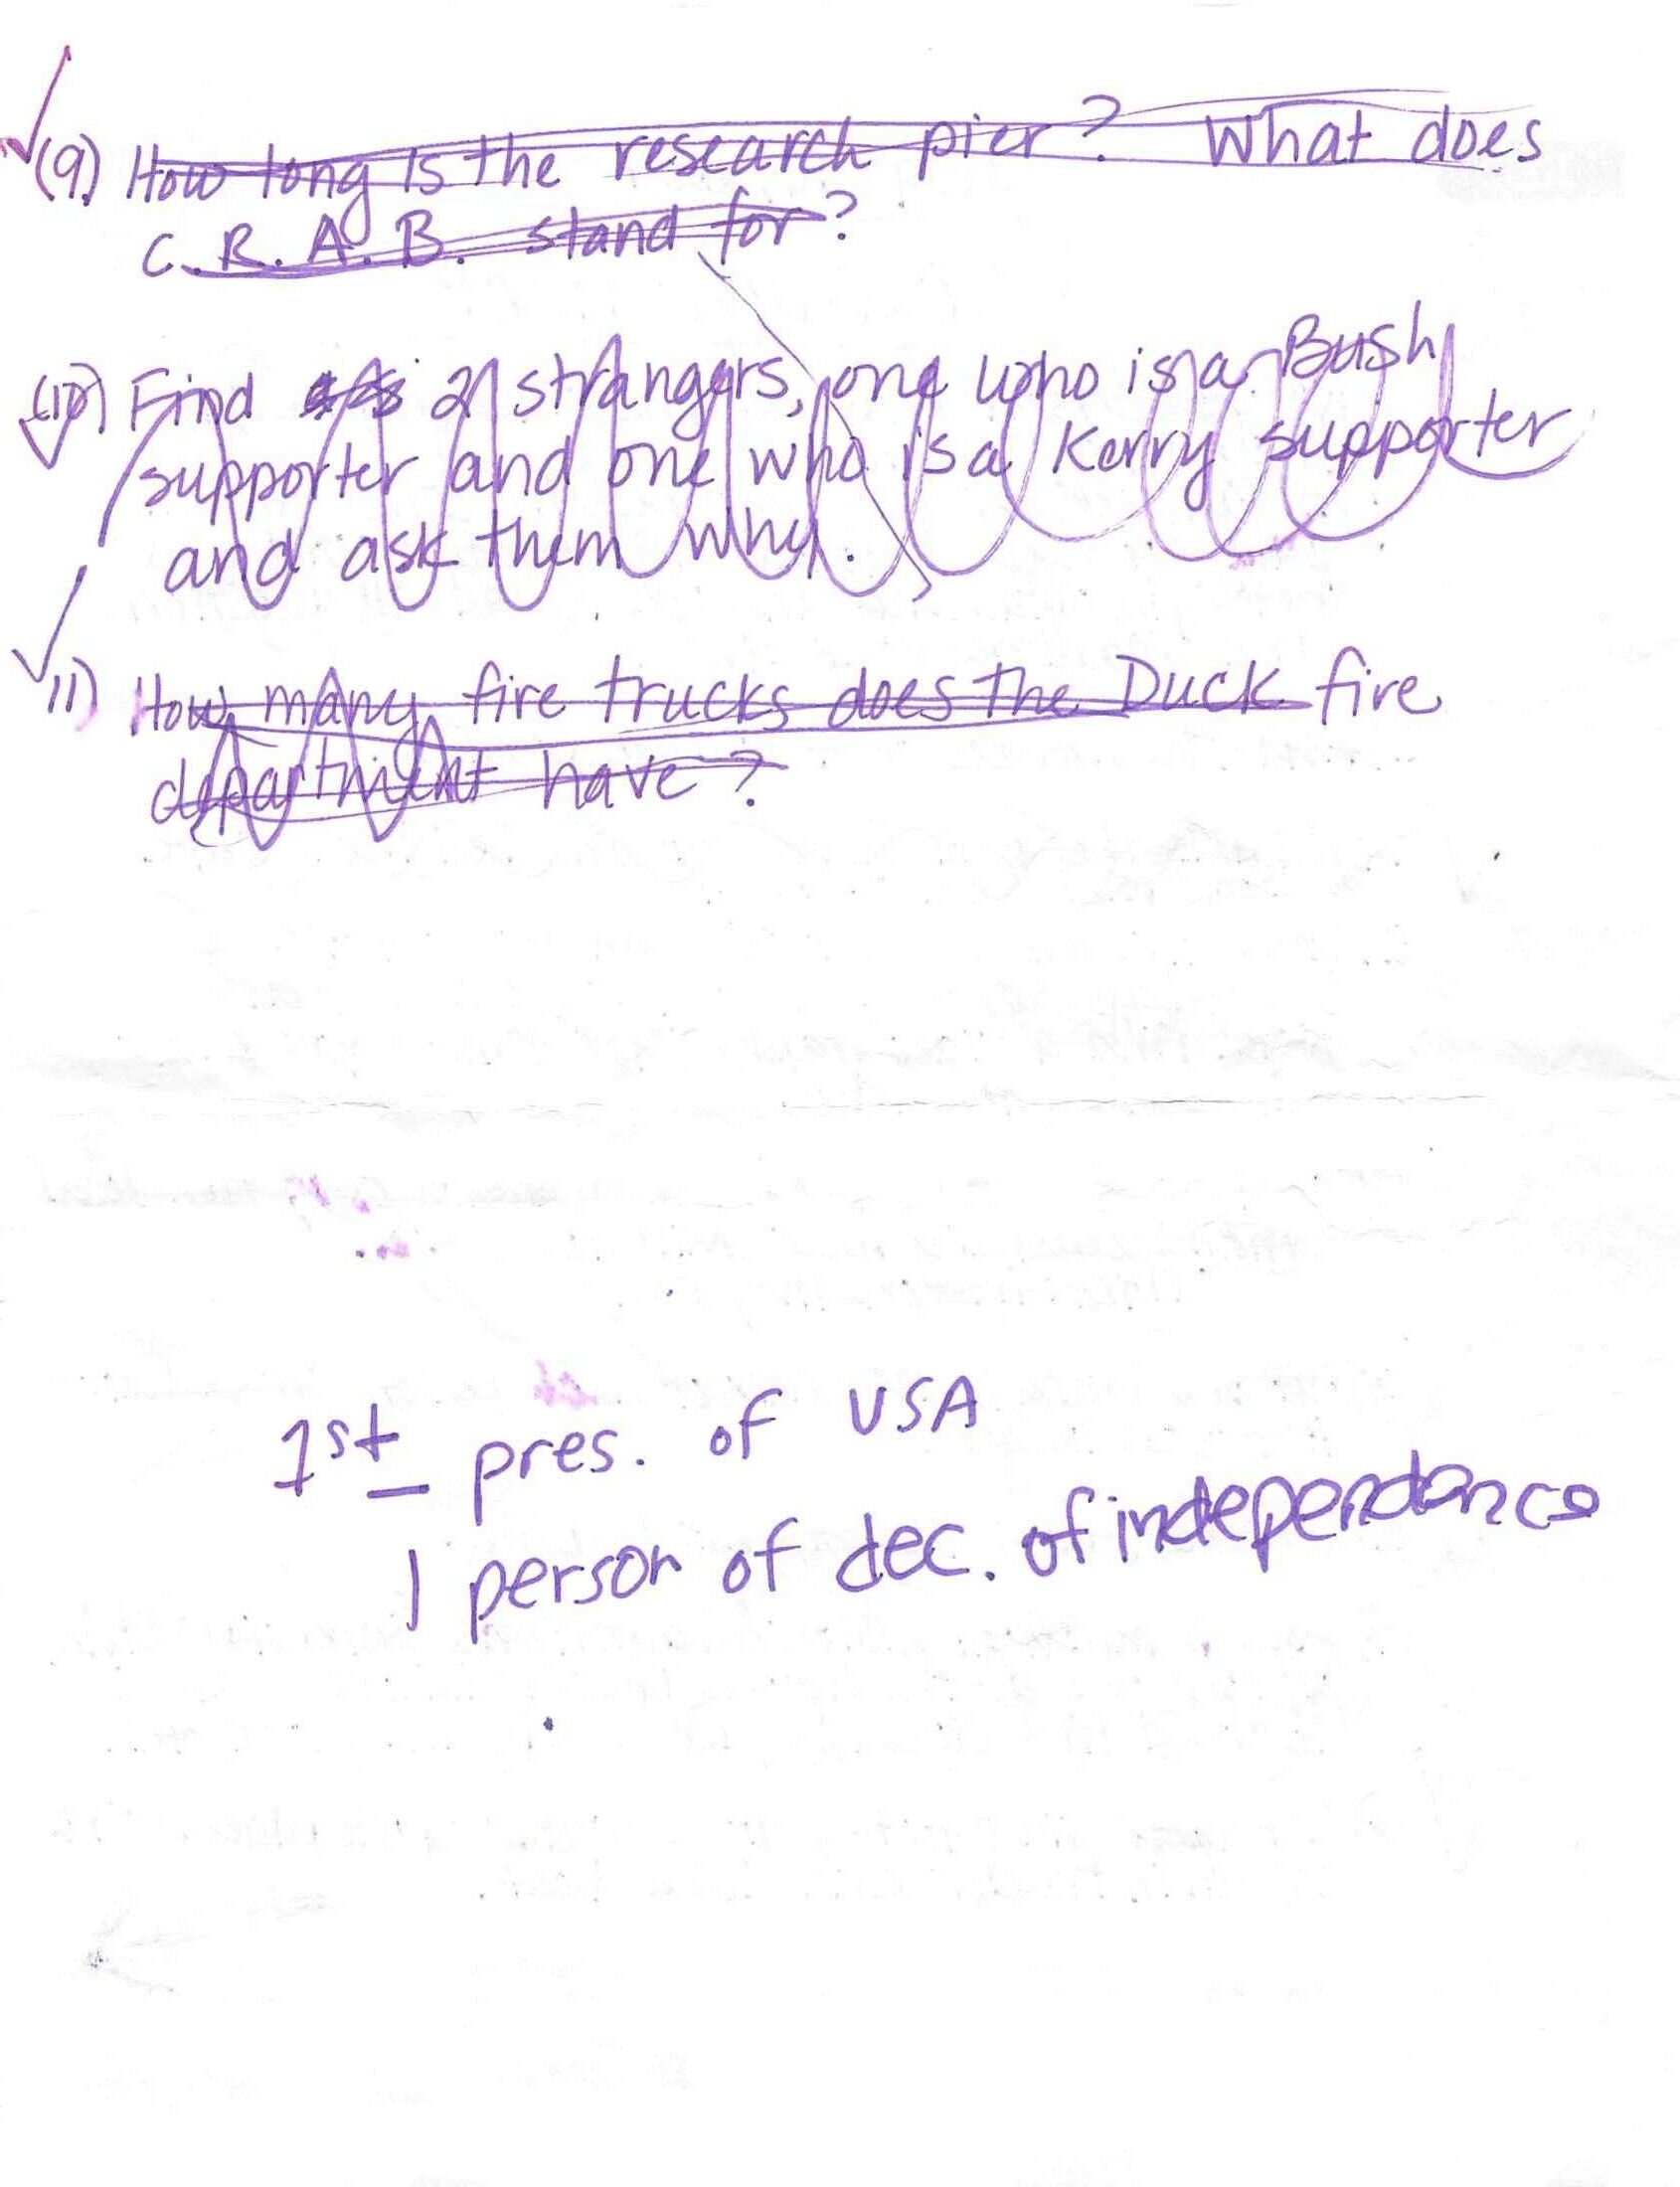 (9) How long is the research pier? What does
C.R.A.B. stand for?
(10) Find 2 strangers, one who is a Bush
supporter and one who is a Kerry supporter
and ask them why.
11) How many fire trucks does the Duck fire
department have?
1st pres. of USA
1 person of dec. of independance